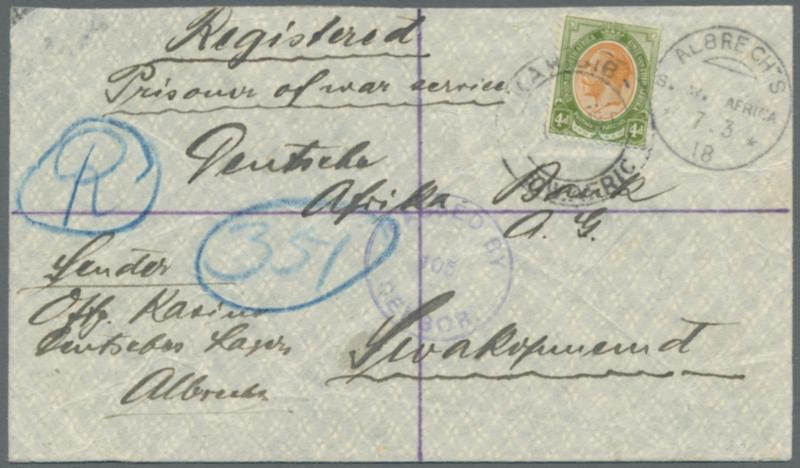 Registered
Prisoner of war service
Deutsche
Afrika Bank
A. G.
Swakopmund
R
351
Sender
Off. Kasino
Deutsches Lager
Albrechts
ALBRECHTS
S. W. AFRICA
7. 3
18
PASSED BY
105
CENSOR
4d 4d